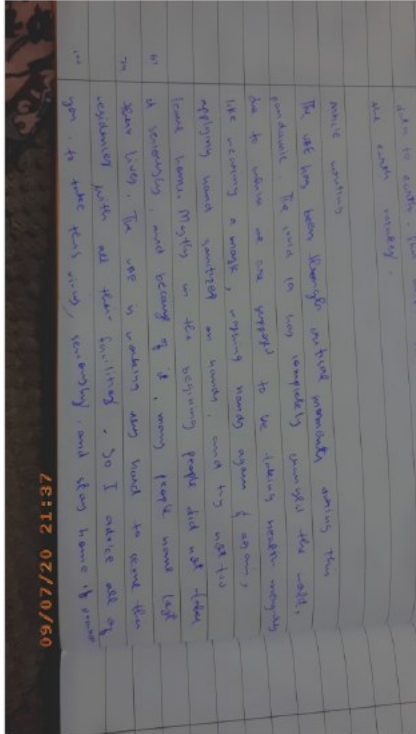 data to earth. This
the earth
article writing
The UAE has been through critical moments during this
pandamic. The covid 19 has completely changed the world,
due to which we are suppose to be taking health measures
like wearing a mask, wiping hands again & again,
applying hand sanitizer on hands, and try not to
leave home. Mostly in the begining people did not take
it seriously, and because of it, many people have lost
their lives. The UAE is working very hard to serve their
residencies with all their facilities. So I advice all of
you to take this virus seriously, and stay home if
09/07/20 21:37